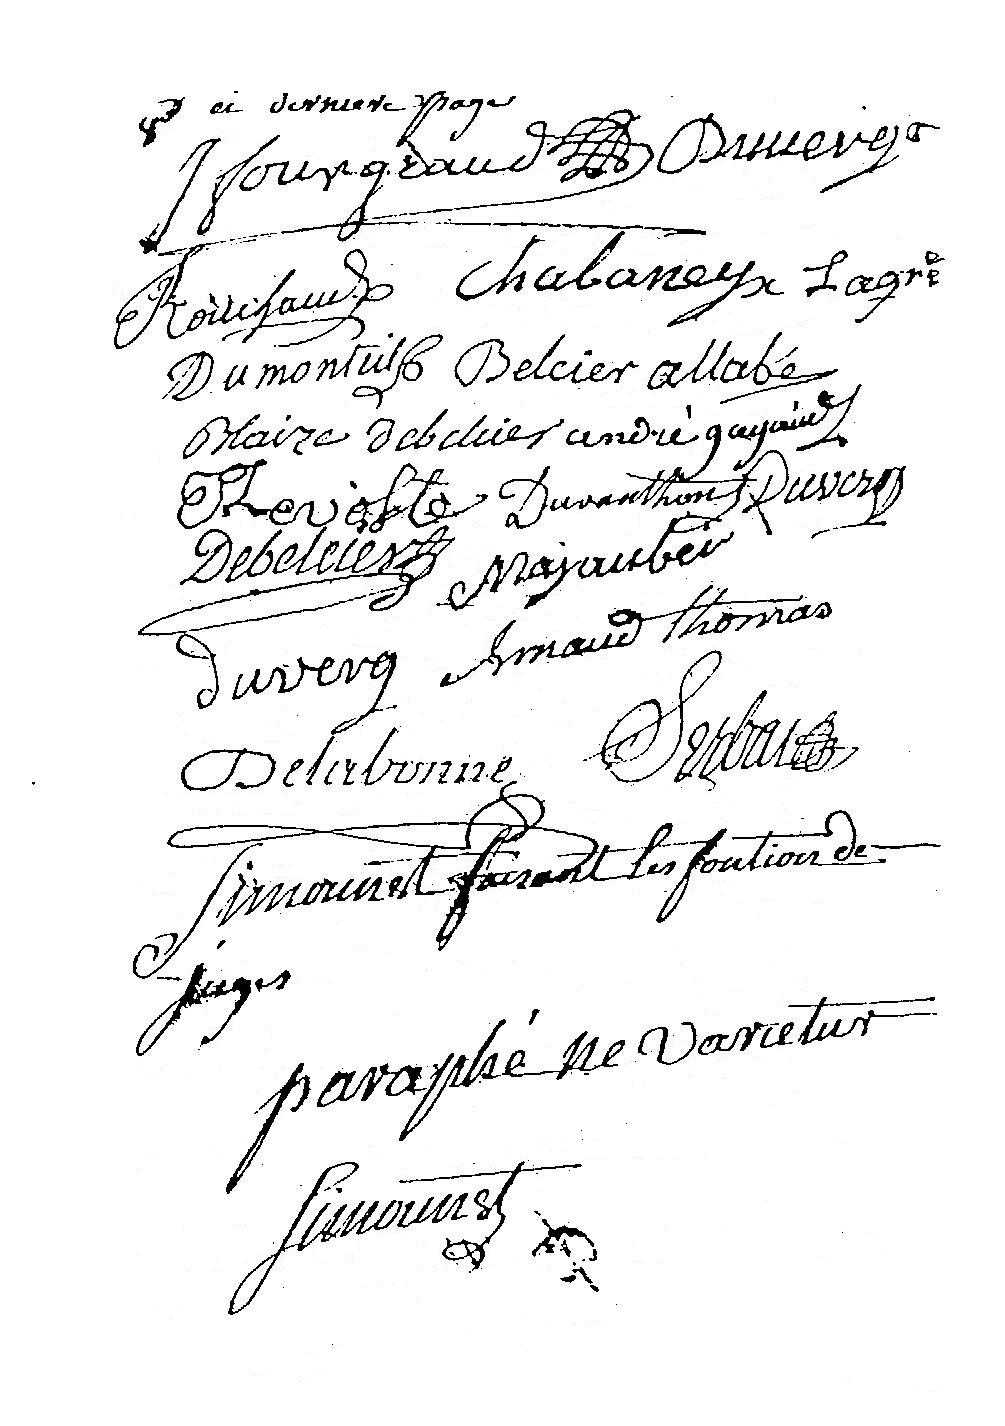 8e et derniere page
J fourgeaud Duverge
Rouchaud Chabaneyx Lagré
Dumonteilh Belcier allabé
Blaize debelcier andré gayaud
Duranthon Duverg
Debelcier Majaubeir
duverg Arnaud thomas
Delabonne
Simounet faisant les fontion de
juges
paraphé ne varietur
Simounet